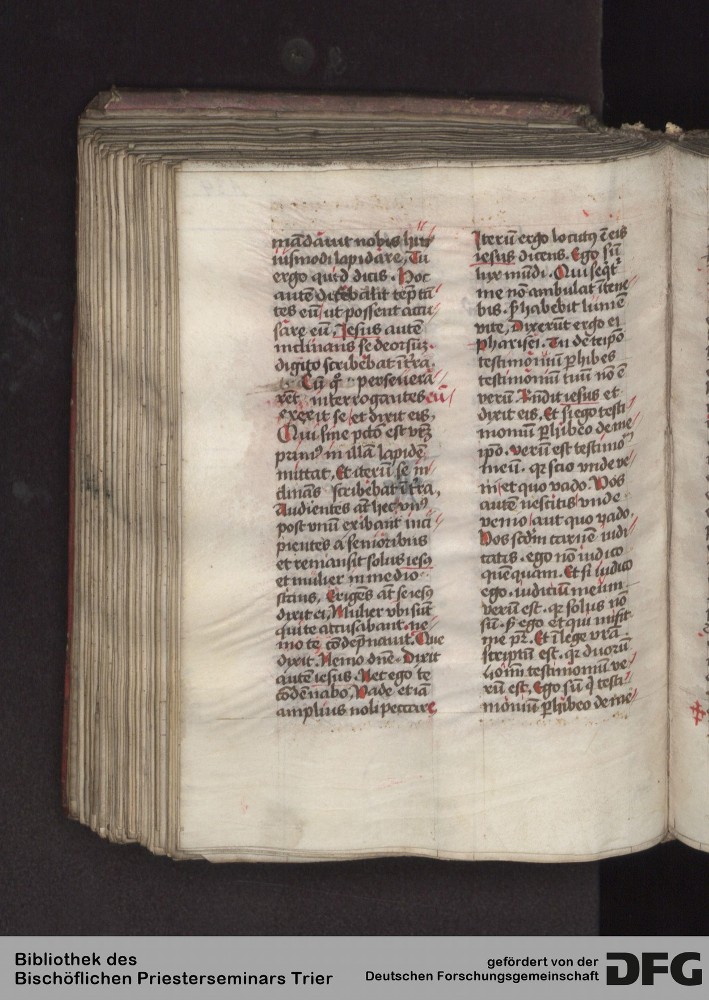 mādauit nobis hui⁹
iusmodi lapidare, Tu
ergo quid dicis. Hoc
autē dicebāt tēptā
tes eū, ut possent accu
sare eū. Jesus autē
inclinans se deorsū.
digito scribebat ī t̄ra.
Cū g͛ perseuera
rēt, interrogantes eū
erexit se et dixit eis,
Qui sine pctō est vr̄m
prim⁹ in illā lapidē
mittat, Et iterū se in
clinās scribebat ī t̄ra,
Audientes āt hec vn⁹
post vnū exibant inci
pientes a senioribus
et remansit solus iesꝯ
et mulier in medio
stans, Erigēs āt se iesꝯ
dixit ei, Mulier vbi sūt
qui te accusabant. ne
mo te cōdēpnauit. Que
dixit. Nemo dn̄e. Dixit
autē iesus. Nec ego te
cōdēnabo, Vade et iā
amplius noli peccare
Iterū ergo locut⁹ ē eis
iesus dicens. Ego sū
lux mūdi. Qui seqt̄
me nō ambulat ī tene
bis. s̄ habebit lumē
vite, Dixerūt ergo ei
pharisei. Tu de teip̄o
testimoniū ꝑhibes
testimoniū tuū nō ē
verū. Rn̄dit iesus et
dixit eis. Et si ego testi
moniū ꝑhibeo de me
ip̄o. verū est testimo
meū. qꝛ scio vnde ve
ni et quo vado. Vos
autē nescitis vnde
venio aut quo vado.
Vos scd̄m carnē iudi
catis. ego nō iudico
quēquam. Et si iudico
ego. iudiciū meum
verū est. qꝛ solus nō
sū. s̄ ego et qui misit
me pr̄. Et ī lege vr̄a
scriptū est. qꝛ duorū
hōim̄ testimoniū ve
rū est, Ego sū q̇ testi
moniū ꝑhibeo de me
Bibliothek des
Bischöflichen Priesterseminars Trier
gefördert von der
Deutschen Forschungsgemeinschaft
DFG